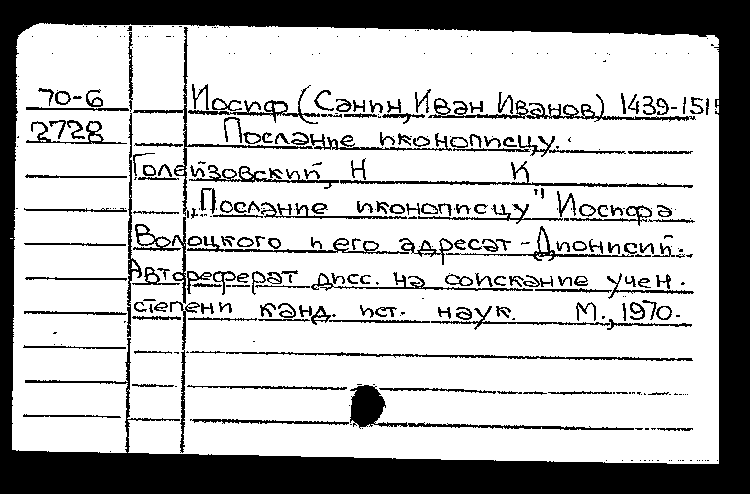 70-6 Иосиф (Санин, Иван Иванов) 1439-1515
2728 Послание иконописцу.
Голейзовский, Н К
„Послание иконописцу" Иосифа
Волоцкого и его адресат - Дионисий.
Автореферат дисс. на соискание учен.
степени канд. ист. наук. М., 1970.